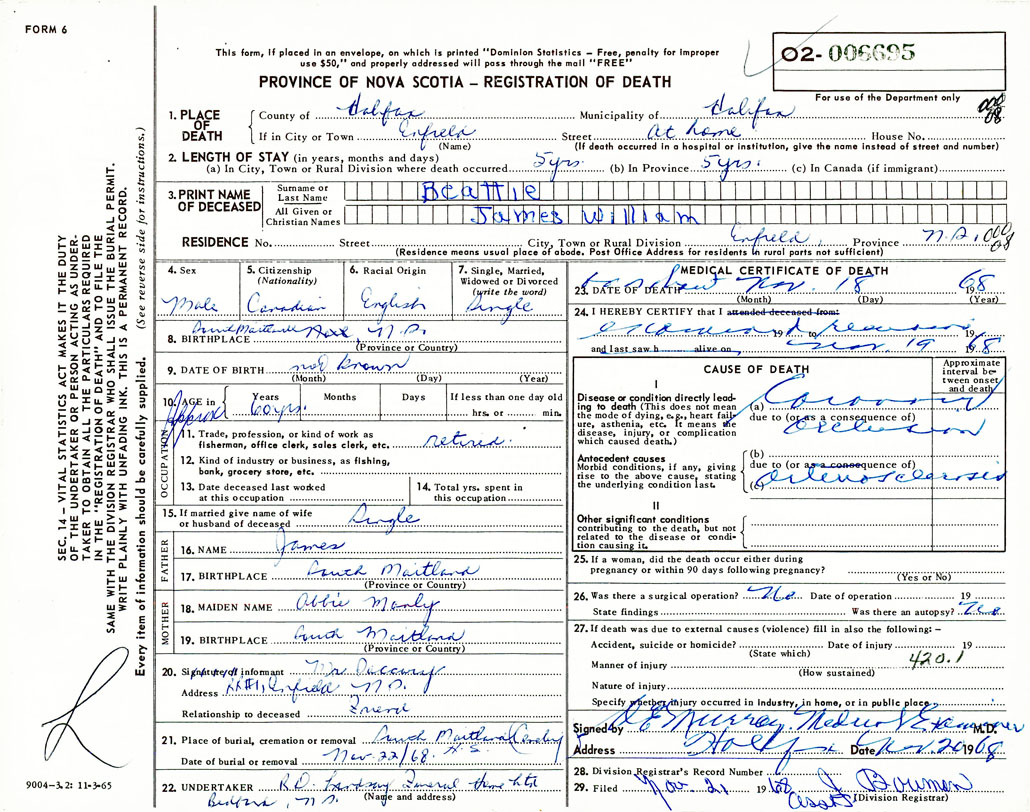 FORM 6
This form, if placed in an envelope, on which is printed "Dominion Statistics – Free, penalty for improper
use $50," and properly addressed will pass through the mail "FREE"
O2-006695
PROVINCE OF NOVA SCOTIA – REGISTRATION OF DEATH
For use of the Department only
1. PLACE OF DEATH
County of Halifax Municipality of Halifax
If in City or Town Enfield Street At home House No.
(Name) (If death occurred in a hospital or institution, give the name instead of street and number)
2. LENGTH OF STAY (in years, months and days)
(a) In City, Town or Rural Division where death occurred 5 yrs. (b) In Province 5 yrs. (c) In Canada (if immigrant)
3. PRINT NAME OF DECEASED
Surname or Last Name Beattie
All Given or Christian Names James William
RESIDENCE No. Street City, Town or Rural Division Enfield, Province N.S.
(Residence means usual place of abode. Post Office Address for residents in rural parts not sufficient)
4. Sex
Male
5. Citizenship
(Nationality)
Canadian
6. Racial Origin
English
7. Single, Married,
Widowed or Divorced
(write the word)
Single
8. BIRTHPLACE South Maitland N.S.
(Province or Country)
9. DATE OF BIRTH not known
(Month) (Day) (Year)
10. AGE in Years Months Days If less than one day old
Approx 60 yrs. hrs. or min.
OCCUPATION
11. Trade, profession, or kind of work as
fisherman, office clerk, sales clerk, etc. retired.
12. Kind of industry or business, as fishing,
bank, grocery store, etc.
13. Date deceased last worked
at this occupation
14. Total yrs. spent in
this occupation
15. If married give name of wife
or husband of deceased Single
FATHER
16. NAME James
17. BIRTHPLACE South Maitland
(Province or Country)
MOTHER
18. MAIDEN NAME Abbie
19. BIRTHPLACE South Maitland
(Province or Country)
20. Signature of informant Mr
Address RR#1, Enfield N.S.
Relationship to deceased Friend
21. Place of burial, cremation or removal South Maitland Cemetery N.S.
Date of burial or removal Nov. 22/68.
22. UNDERTAKER R.D. Lindsay Funeral Home Ltd
(Name and address)
Bedford, N.S.
MEDICAL CERTIFICATE OF DEATH
23. DATE OF DEATH Nov. 18 1968
(Month) (Day) (Year)
24. I HEREBY CERTIFY that I attended deceased from:
19 to 19
and last saw h alive on Nov. 19 1968
CAUSE OF DEATH
Approximate
interval be-
tween onset
and death
I
Disease or condition directly lead-
ing to death (This does not mean
the mode of dying, e.g., heart fail-
ure, asthenia, etc. It means the
disease, injury, or complication
which caused death.)
(a) Coronary
due to (or as a consequence of)
Occlusion
Antecedent causes
Morbid conditions, if any, giving
rise to the above cause, stating
the underlying condition last.
(b)
due to (or as a consequence of)
(c) Arteriosclerosis
II
Other significant conditions
contributing to the death, but not
related to the disease or condi-
tion causing it.
25. If a woman, did the death occur either during
pregnancy or within 90 days following pregnancy?
(Yes or No)
26. Was there a surgical operation? No Date of operation 19
State findings Was there an autopsy? No
27. If death was due to external causes (violence) fill in also the following: –
Accident, suicide or homicide? Date of injury 19
(State which)
420.1
Manner of injury
(How sustained)
Nature of injury
Specify whether injury occurred in industry, in home, or in public place
Signed by D E Murray Medical Examiner M.D.
Address Halifax Date Nov. 20 1968
28. Division Registrar's Record Number
29. Filed Nov. 21 1968 J Bowmen
Asst. (Division Registrar)
SEC. 14 – VITAL STATISTICS ACT MAKES IT THE DUTY
OF THE UNDERTAKER OR PERSON ACTING AS UNDER-
TAKER TO OBTAIN ALL THE PARTICULARS REQUIRED
IN THE "REGISTRATION OF DEATH" AND TO FILE THE
SAME WITH THE DIVISION REGISTRAR WHO SHALL ISSUE THE BURIAL PERMIT.
WRITE PLAINLY WITH UNFADING INK. THIS IS A PERMANENT RECORD.
Every item of information should be carefully supplied. (See reverse side for instructions.)
9004-3.2: 11-3-65